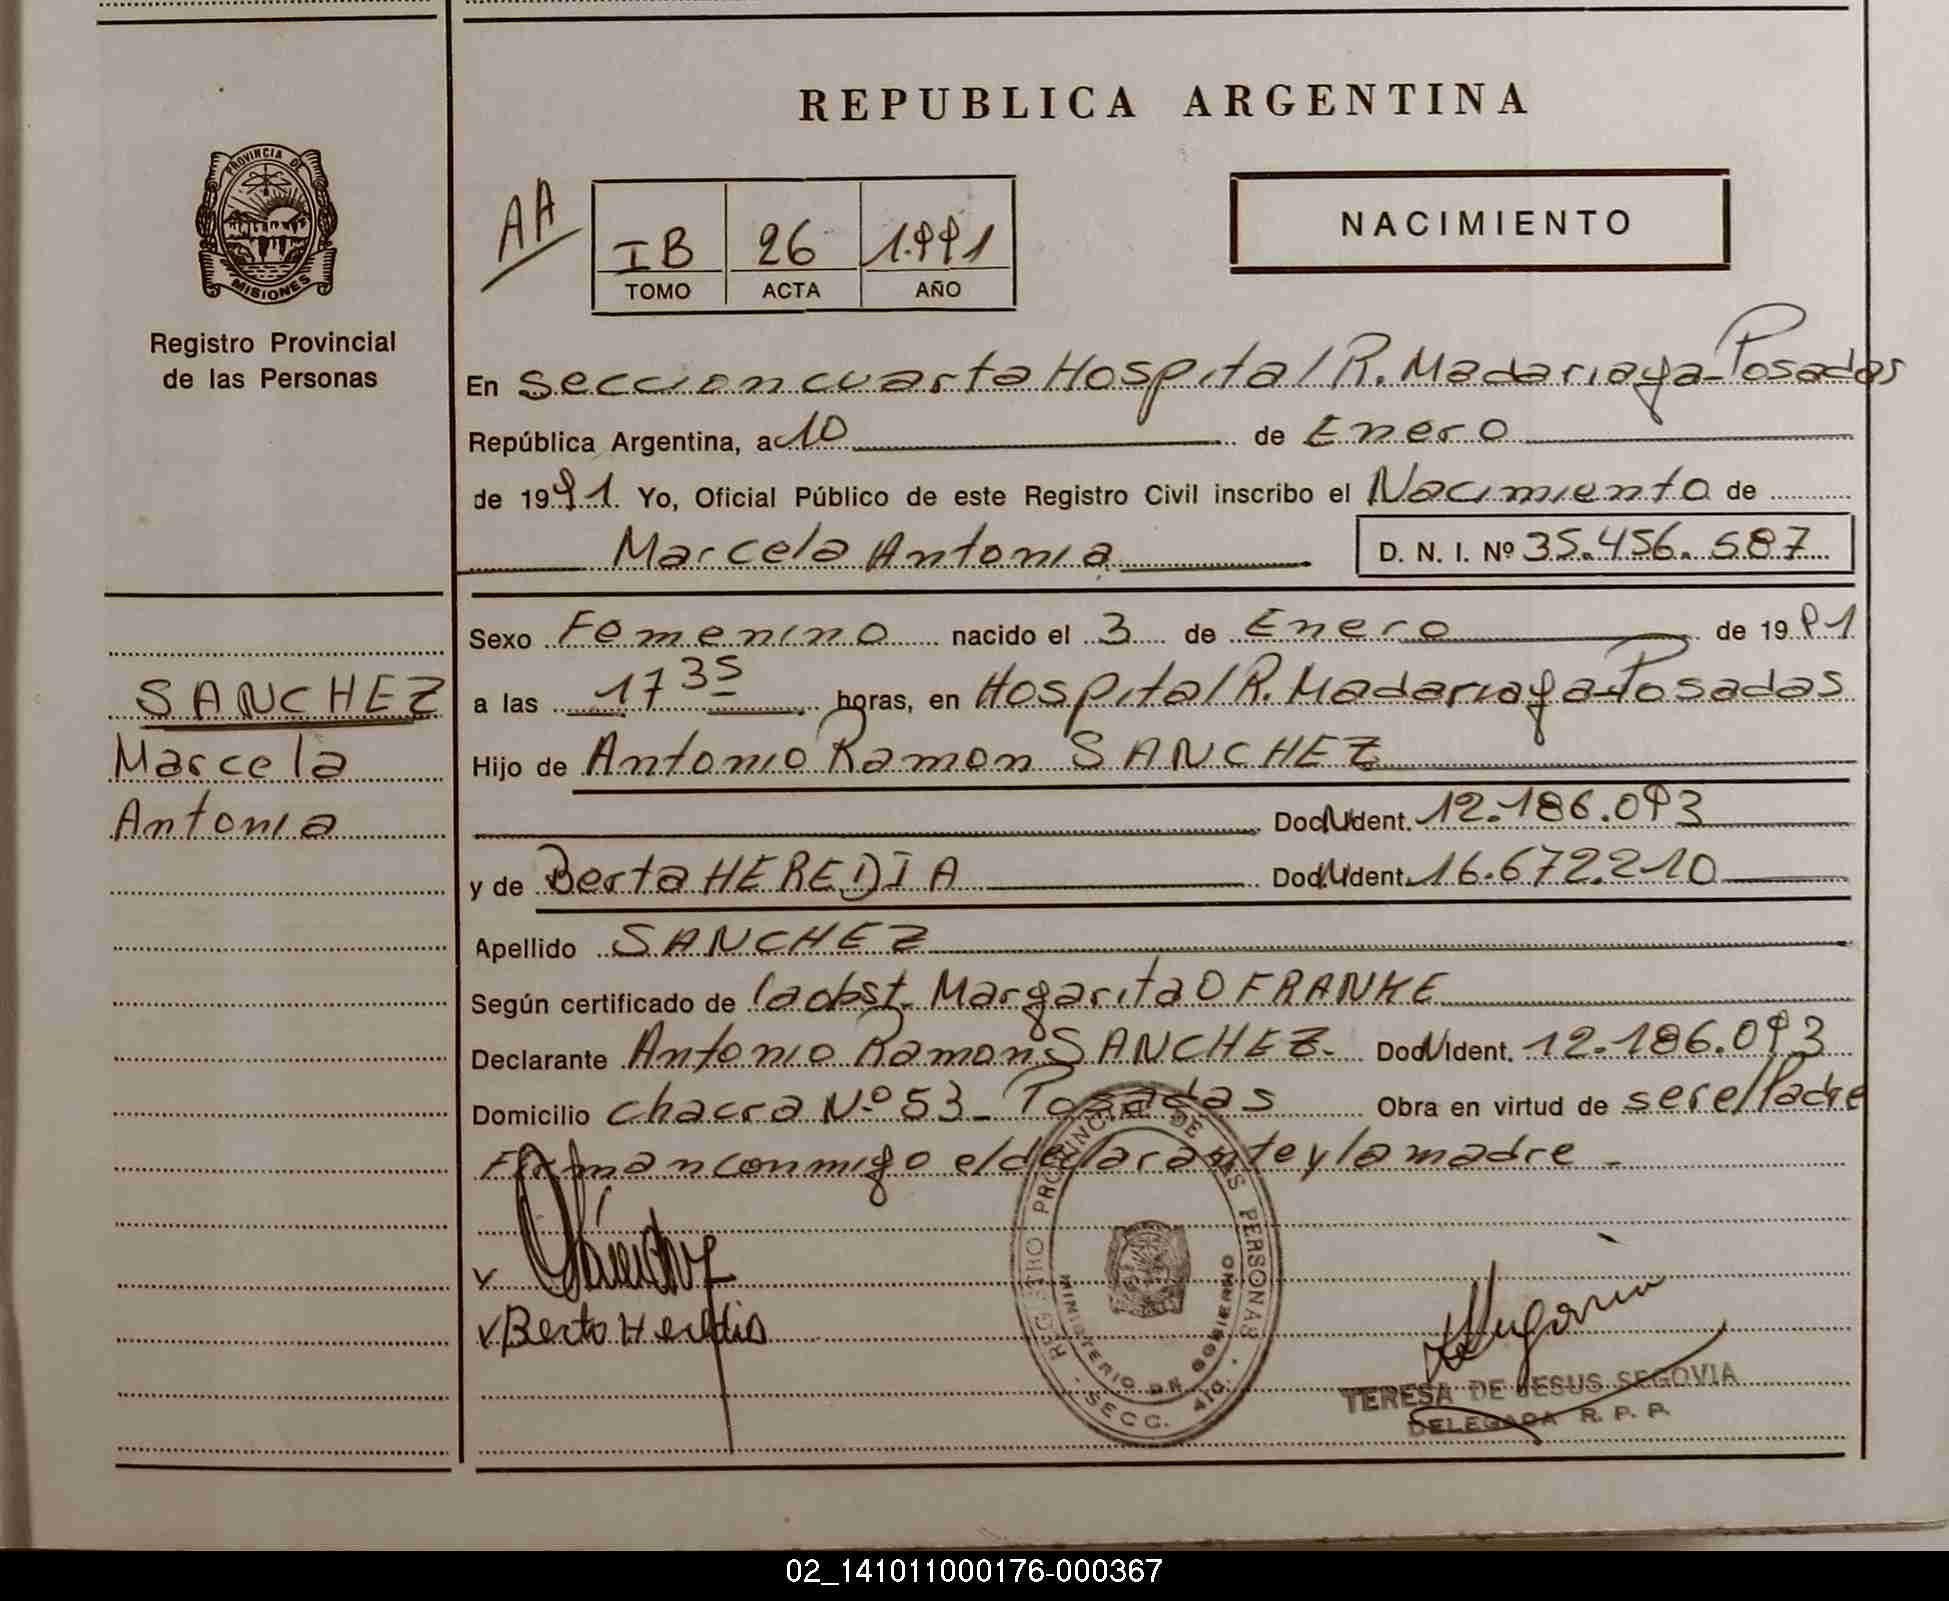 REPUBLICA ARGENTINA
PROVINCIA DE
MISIONES
Registro Provincial
de las Personas
AA
IB 26 1991
TOMO ACTA AÑO
NACIMIENTO
En Seccion cuarta Hospital R. Madariaga - Posadas
República Argentina, a 10 de Enero
de 1991. Yo, Oficial Público de este Registro Civil inscribo el Nacimiento de
Marcela Antonia D. N. I. Nº 35.456.587
Sexo Femenino nacido el 3 de Enero de 1991
SANCHEZ
Marcela
Antonia
a las 17 35 horas, en Hospital R. Madariaga - Posadas
Hijo de Antonio Ramon SANCHEZ
Doc. Ident. 12.186.093
y de Berta HEREDIA Doc. Ident. 16.672.210
Apellido SANCHEZ
Según certificado de la obst. Margarita O FRANKE
Declarante Antonio Ramon SANCHEZ. Doc. Ident. 12.186.093
Domicilio chacra Nº 53 - Posadas Obra en virtud de ser el Padre
Firman conmigo el declarante y la madre -
Sánchez
Berta Heredia
REGISTRO PROVINCIAL DE LAS PERSONAS
MINISTERIO DE GOBIERNO
SECC. 4TO.
TERESA DE JESUS SEGOVIA
DELEGADA R. P. P.
02_141011000176-000367